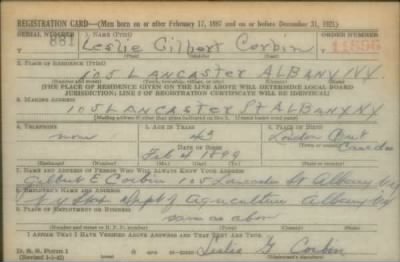 REGISTRATION CARD—(Men born on or after February 17, 1897 and on or before December 31, 1921)
SERIAL NUMBER 1. NAME (Print) ORDER NUMBER
881 Leslie Gilbert Corbin 11596
(First) (Middle) (Last)
2. PLACE OF RESIDENCE (Print)
105 LANCASTER ALBANY N.Y.
(Number and street) (Town, township, village, or city) (County) (State)
[THE PLACE OF RESIDENCE GIVEN ON THE LINE ABOVE WILL DETERMINE LOCAL BOARD
JURISDICTION; LINE 2 OF REGISTRATION CERTIFICATE WILL BE IDENTICAL]
3. MAILING ADDRESS
105 LANCASTER ST ALBANY NY
[Mailing address if other than place indicated on line 2. If same insert word same]
4. TELEPHONE 5. AGE IN YEARS 6. PLACE OF BIRTH
none 43 London Ont
DATE OF BIRTH Canada
Feb 4 1899
(Exchange) (Number) (Mo.) (Day) (Yr.)
7. NAME AND ADDRESS OF PERSON WHO WILL ALWAYS KNOW YOUR ADDRESS
Gilbert E Corbin 105 Lancaster St Albany NY
8. EMPLOYER'S NAME AND ADDRESS
N Y State Dept of Agriculture Albany NY
9. PLACE OF EMPLOYMENT OR BUSINESS
same as above
(Number and street or R. F. D. number) (Town) (County) (State)
I AFFIRM THAT I HAVE VERIFIED ABOVE ANSWERS AND THAT THEY ARE TRUE.
D. S. S. Form 1
(Revised 1-1-42) Leslie G. Corbin